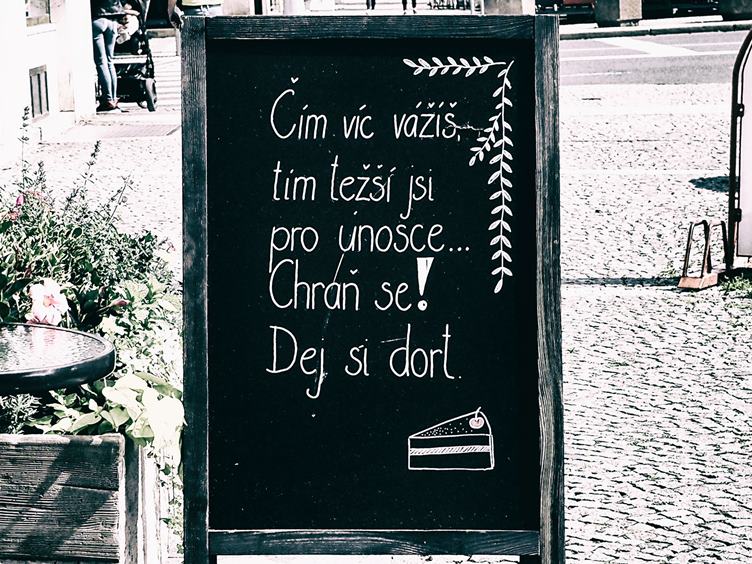 Čím víc vážíš,
tím težší jsi
pro únosce...
Chraň se!
Dej si dort.